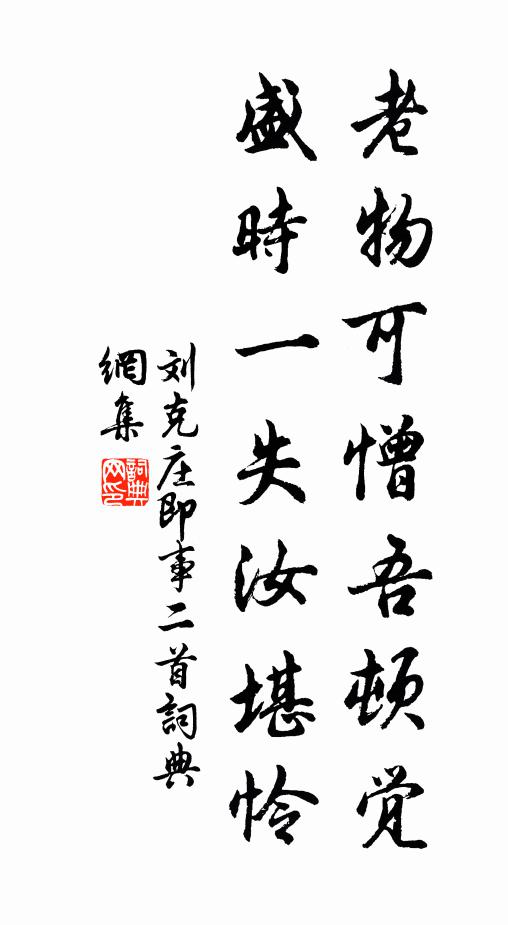 老物可憎吾頓覚
盛時一失汝堪怜
刘克庄即事二首詞典
網集
詞典網印